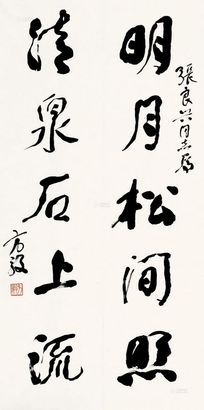 張良兴同志属
明月松间照
清泉石上流
方毅